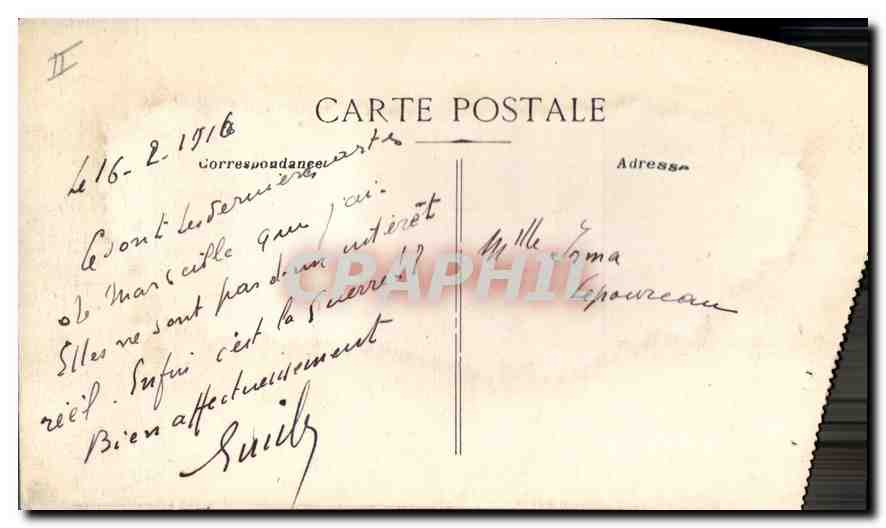 II
CARTE POSTALE
Correspondance
Adresse
Le 16-2-1916
Ce sont les dernières cartes
de Marseille que j'ai.
Elles ne sont pas d'un intérêt
réél. Enfin c'est la guerre!!
Bien affectueusement
Emile
Mlle Irma
Lepoureau
CPAPHIL